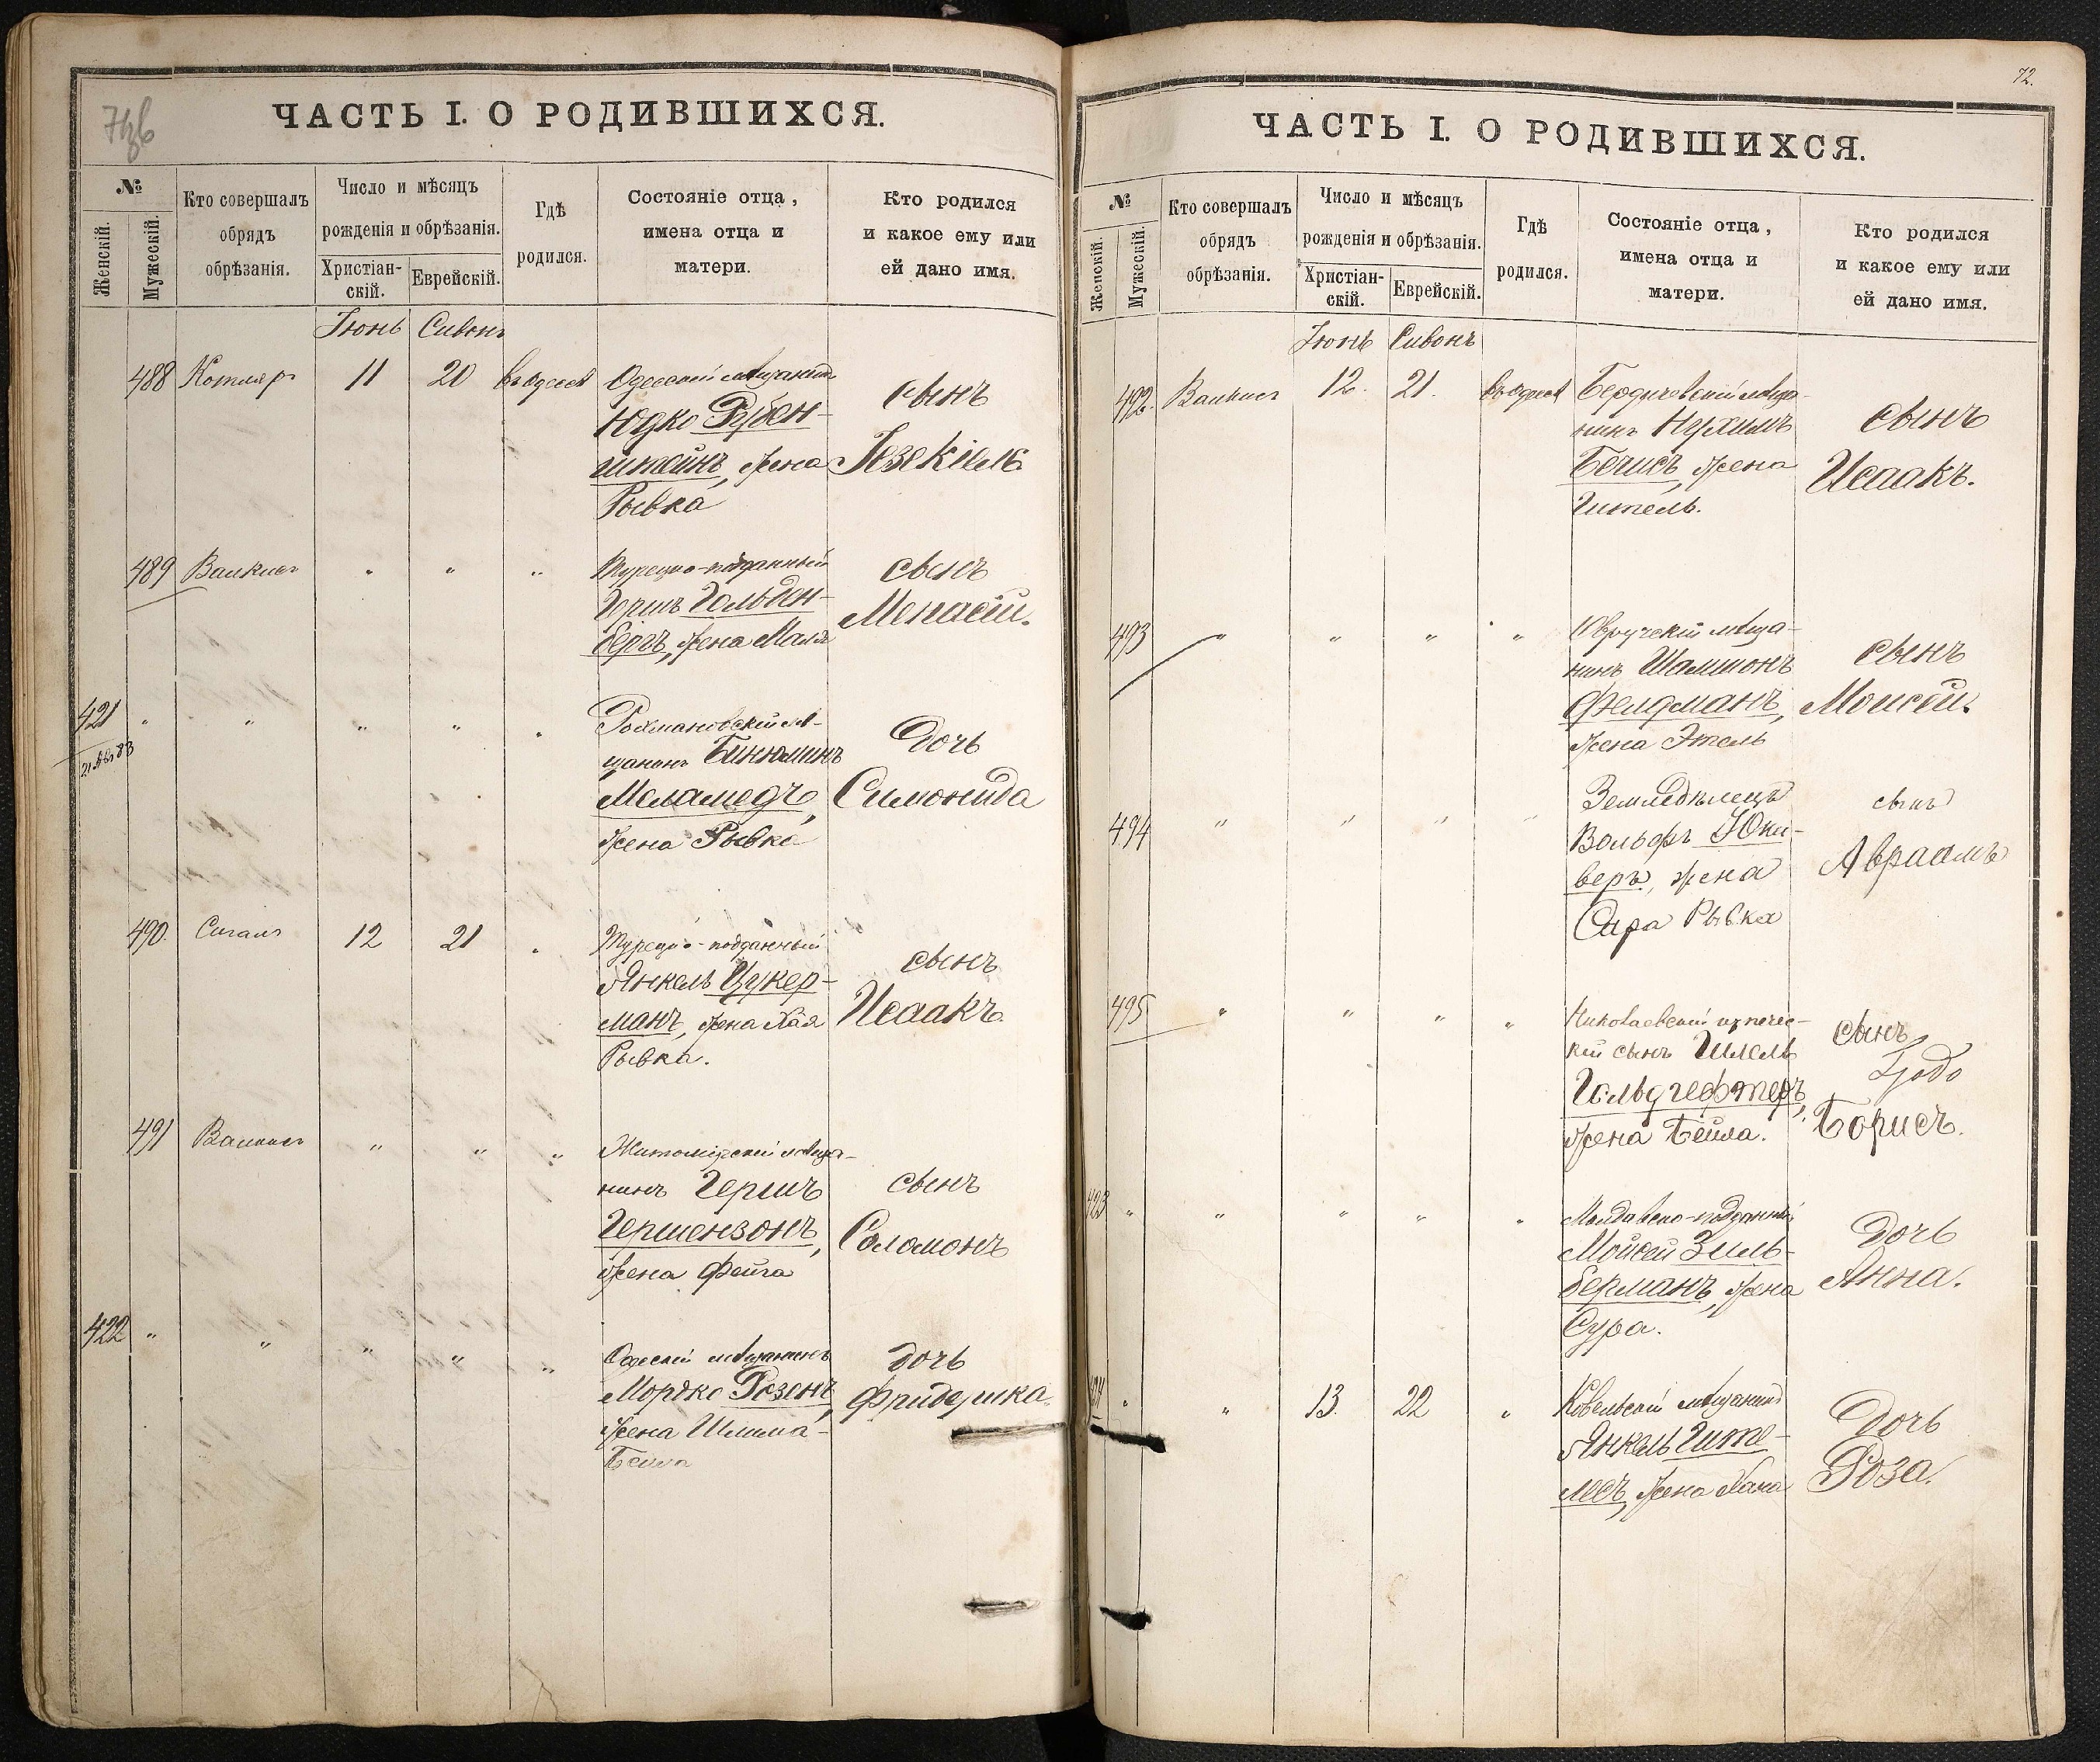 ЧАСТЬ I. О РОДИВШИХСЯ.
№
Женскій.
Мужескій.
Кто совершалъ
обрядъ
обрѣзанія.
Число и мѣсяцъ
рожденія и обрѣзанія.
Христіан-
скій.
Еврейскій.
Гдѣ
родился.
Состояніе отца,
имена отца и
матери.
Кто родился
и какое ему или
ей дано имя.
Іюнь Сивонъ
488 Котляръ 11 20 въ Одессѣ Одесскій мѣщанинъ
Юдко Рубен-
штейнъ, жена
Рывка
сынъ
Іезекіель
489 " " " Турецко-подданный
Гершъ Гольден-
бергъ, жена Маля
сынъ
Менасій.
421 " " " " " Рохмановскій мѣ-
щанинъ Бинюминъ
Меламедъ,
жена Рывка
дочь
Симонида
490. Сигалъ 12 21 " Турецко-подданный
Янкель Цукер-
манъ, жена Хая
Рывка.
сынъ
Исаакъ.
491 " " " Житомірскій мѣща-
нинъ Гершъ
Гершензонъ,
жена Фейга
сынъ
Соломонъ
422 " " " " " Одесскій мѣщанинъ
Мордко Розенъ,
жена Шлима-
Бейла
дочь
Фридушка.
72.
ЧАСТЬ I. О РОДИВШИХСЯ.
№
Женскій.
Мужескій.
Кто совершалъ
обрядъ
обрѣзанія.
Число и мѣсяцъ
рожденія и обрѣзанія.
Христіан-
скій.
Еврейскій.
Гдѣ
родился.
Состояніе отца,
имена отца и
матери.
Кто родился
и какое ему или
ей дано имя.
Іюнь Сивонъ
492. 12. 21. въ Одессѣ Бердичевскій мѣща-
нинъ Нухимъ
жена
Гитель.
сынъ
Исаакъ.
493 " " " " Овручскій мѣща-
нинъ Шамшонъ
Фелдманъ,
жена Этель
сынъ
Моисей.
494 " " " " Земледѣлецъ
Вольфъ
жена
Сара Рывка
сынъ
Авраамъ
495 " " " " Николаевскій купечес-
кій сынъ Шмель
Гольдгефтеръ,
жена Бейла.
сынъ
Борисъ.
423 " " " " " Молдавско-подданный
Мойсей Зиль-
берманъ, жена
Сура.
дочь
Анна.
" " 13. 22 " Ковельскій мѣщанинъ
Янкель Гите-
лесъ, жена Хана
дочь
Роза.